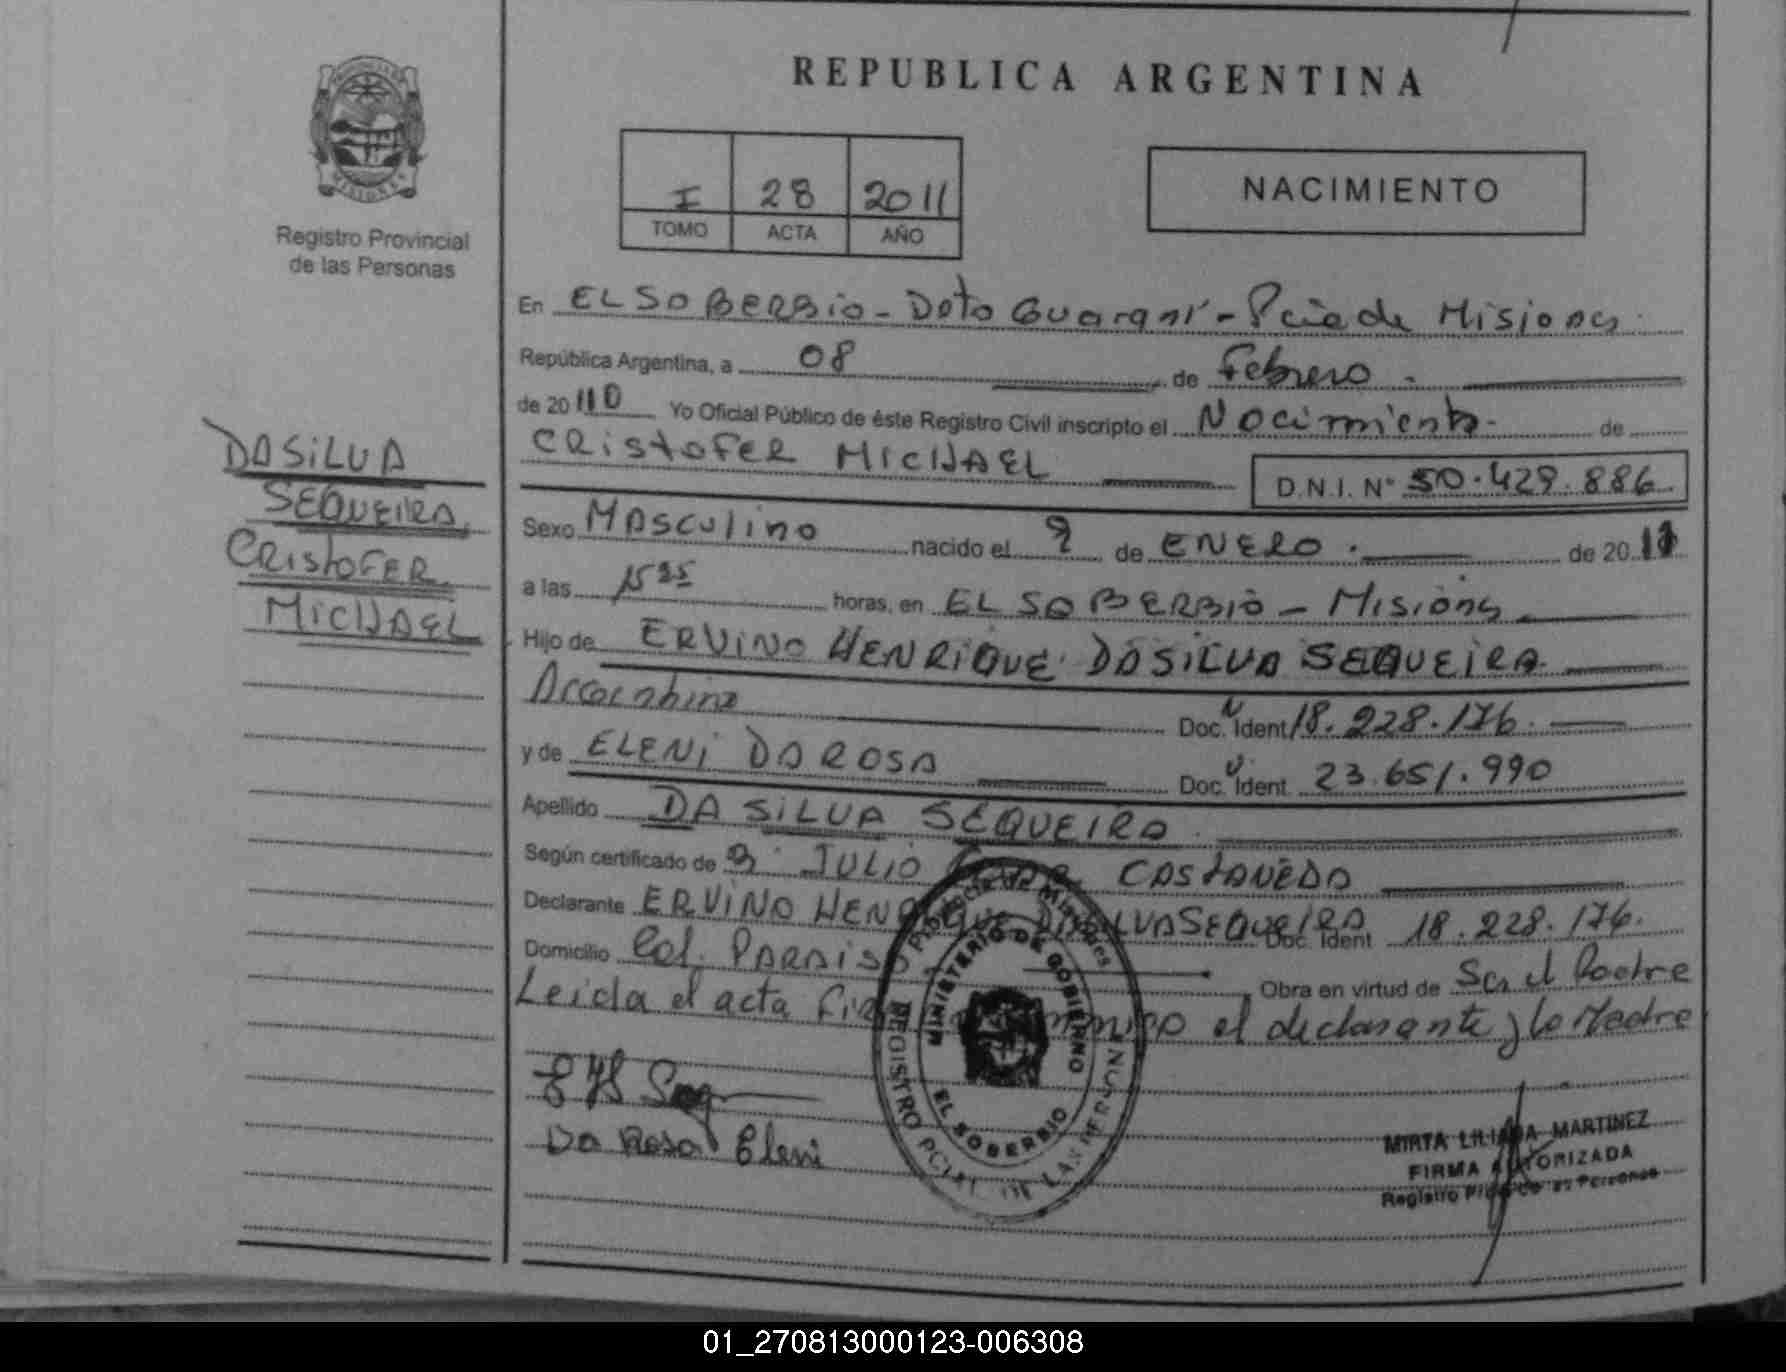 REPUBLICA ARGENTINA
PROVINCIA DE
MISIONES
Registro Provincial
de las Personas
I 28 2011
TOMO ACTA AÑO
NACIMIENTO
En EL SOBERBIO - Dpto Guaraní - Pcia de Misiones
República Argentina, a 08 de Febrero
de 20 11 Yo Oficial Público de éste Registro Civil inscripto el Nacimiento de
CRISTOFER MICHAEL D.N.I. N° 50.429.886
DASILVA
SEQUEIRA
CRISTOFER
MICHAEL
Sexo MASCULINO nacido el 9 de ENERO de 2011
a las 15 horas, en EL SOBERBIO - MISIONES
Hijo de ERVINO HENRIQUE DASILVA SEQUEIRA
Argentino Doc. Ident 18.228.176
y de ELENI DA ROSA Doc. Ident. 23.651.990
Apellido DA SILVA SEQUEIRA
Según certificado de JULIO CASTANEDA
Declarante ERVINO HENRIQUE DASILVA SEQUEIRA Doc. Ident 18.228.176.
Domicilio Col. PARAISO Obra en virtud de Ser el Padre
Leida el acta el declarante y la Madre
Da Rosa Eleni
Provincia de Misiones
MINISTERIO DE GOBIERNO
EL SOBERBIO
REGISTRO PCIAL. DE LAS PERSONAS
MIRTA LILIANA MARTINEZ
FIRMA AUTORIZADA
Registro Personas
01_270813000123-006308